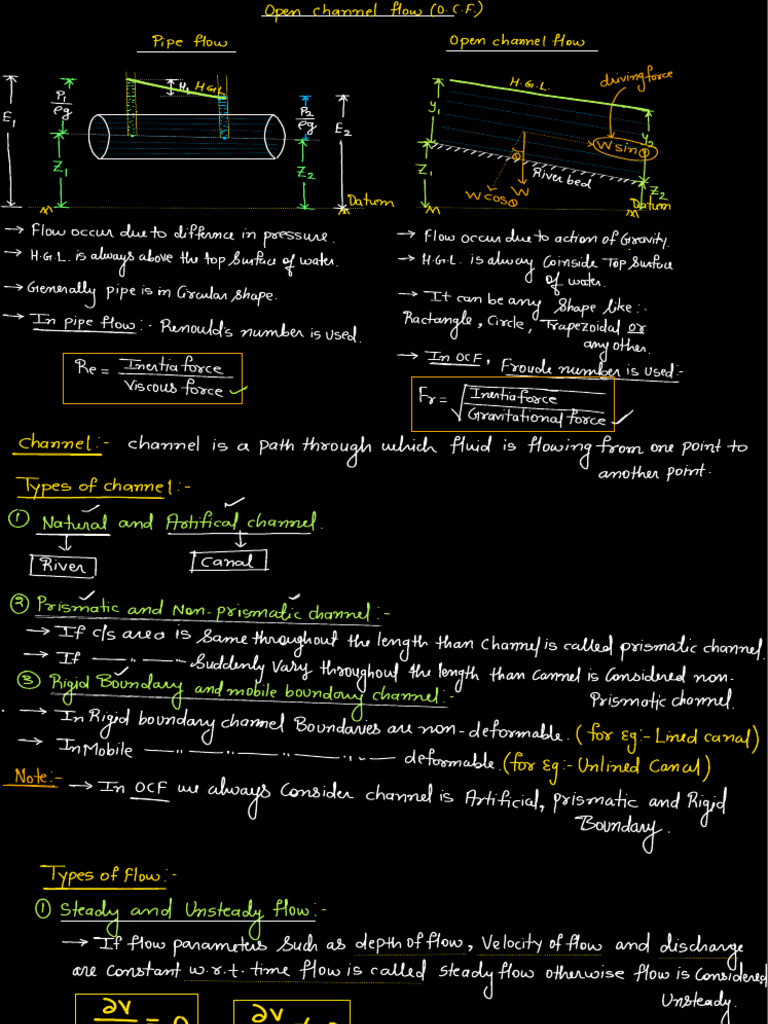 Open channel flow (O.C.F.)
Pipe flow
H1
H.G.L
P1/ρg
E1
Z1
P2/ρg
E2
Z2
Datum
→ Flow occur due to differnce in pressure.
→ H.G.L. is always above the top surface of water.
→ Generally pipe is in Circular shape.
→ In pipe flow:- Renould's number is used.
Re = Inertia force / Viscous force ✓
Open channel flow
H.G.L.
driving force
y1
y2
W sinθ
θ
Z1
River bed
W cosθ
W
Z2
Datum
→ Flow occur due to action of Gravity.
→ H.G.L. is alway Coinside Top surface
of water.
→ It can be any shape like:-
Ractangle, Circle, Trapezoidal or
any other.
→ In OCF, Froude number is used:-
Fr = √ Inertia force / Gravitational force ✓
Channel:- channel is a path through which fluid is flowing from one point to
another point.
Types of channel:-
① Natural and Artifical channel.
River
Canal
② Prismatic and Non-prismatic channel:-
→ If c/s area is same throughout the length than channel is called prismatic channel.
→ If —〃—〃— suddenly vary throughout the length than cannel is considered non-
Prismatic channel.
③ Rigid Boundary and mobile boundary channel:-
→ In Rigid boundary channel Boundaries are non-deformable. (for eg:- Lined canal)
→ In Mobile —〃—〃—〃—〃— deformable. (for Eg:- Unlined Canal)
Note:- → In OCF we always consider channel is Artificial, prismatic and Rigid
Boundary.
Types of Flow:-
① Steady and Unsteady flow:-
→ If flow parameters such as depth of flow, Velocity of flow and discharge
are constant w.r.t. time flow is called steady flow otherwise flow is considered
Unsteady.
∂V
∂V